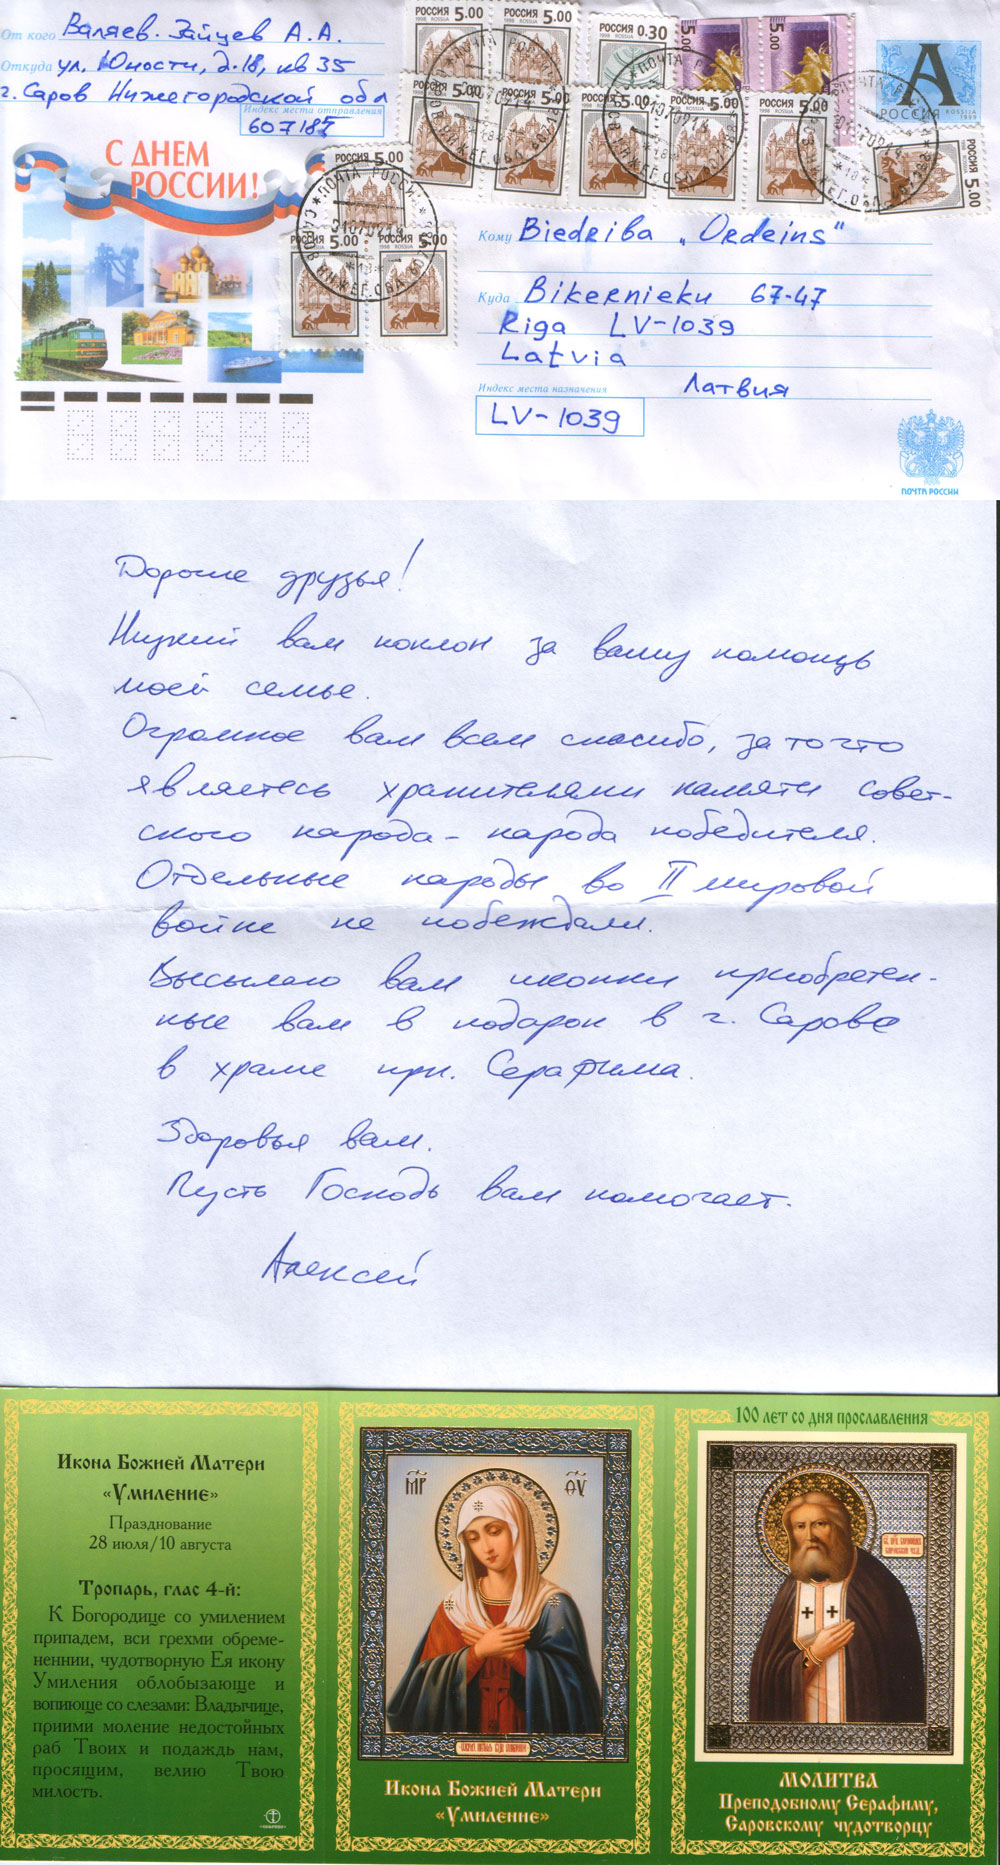 От кого Валяев-Зайцев А.А.
Откуда ул. Юности, д.18, кв 35
г. Саров Нижегородской обл
Индекс места отправления
607187
С ДНЕМ
РОССИИ!
РОССИЯ 5.00
РОССИЯ 5.00
РОССИЯ 0.30
5.00
5.00
А
РОССИЯ
ROSSIJA
1999
5.00
РОССИЯ 5.00
РОССИЯ 5.00
РОССИЯ 5.00
РОССИЯ 5.00
РОССИЯ 5.00
РОССИЯ 5.00
РОССИЯ 5.00
РОССИЯ 5.00
ПОЧТА РОССИИ
Кому Biedriba „Ordeins"
Куда Bikernieku 67-47
Riga LV-1039
Latvia
Латвия
Индекс места назначения
LV-1039
ПОЧТА РОССИИ
Дорогие друзья!
Низкий вам поклон за вашу помощь
моей семье.
Огромное вам всем спасибо, за то что
являетесь хранителями памяти совет-
ского народа - народа победителя.
Отдельные народы во II мировой
войне не побеждали.
Высылаю вам иконки приобретен-
ные вам в подарок в г. Сарове
в храме прп. Серафима.
Здоровья вам.
Пусть Господь вам помогает.
Алексей
Икона Божией Матери
«Умиление»
Празднование
28 июля/10 августа
Тропарь, глас 4-й:
К Богородице со умилением
припадем, вси грехми обреме-
неннии, чудотворную Ея икону
Умиления облобызающе и
вопиюще со слезами: Владычице,
приими моление недостойных
раб Твоих и подаждь нам,
просящим, велию Твою
милость.
МР ѲУ
Икона Божией Матери
«Умиление»
100 лет со дня прославления
МОЛИТВА
Преподобному Серафиму,
Саровскому чудотворцу